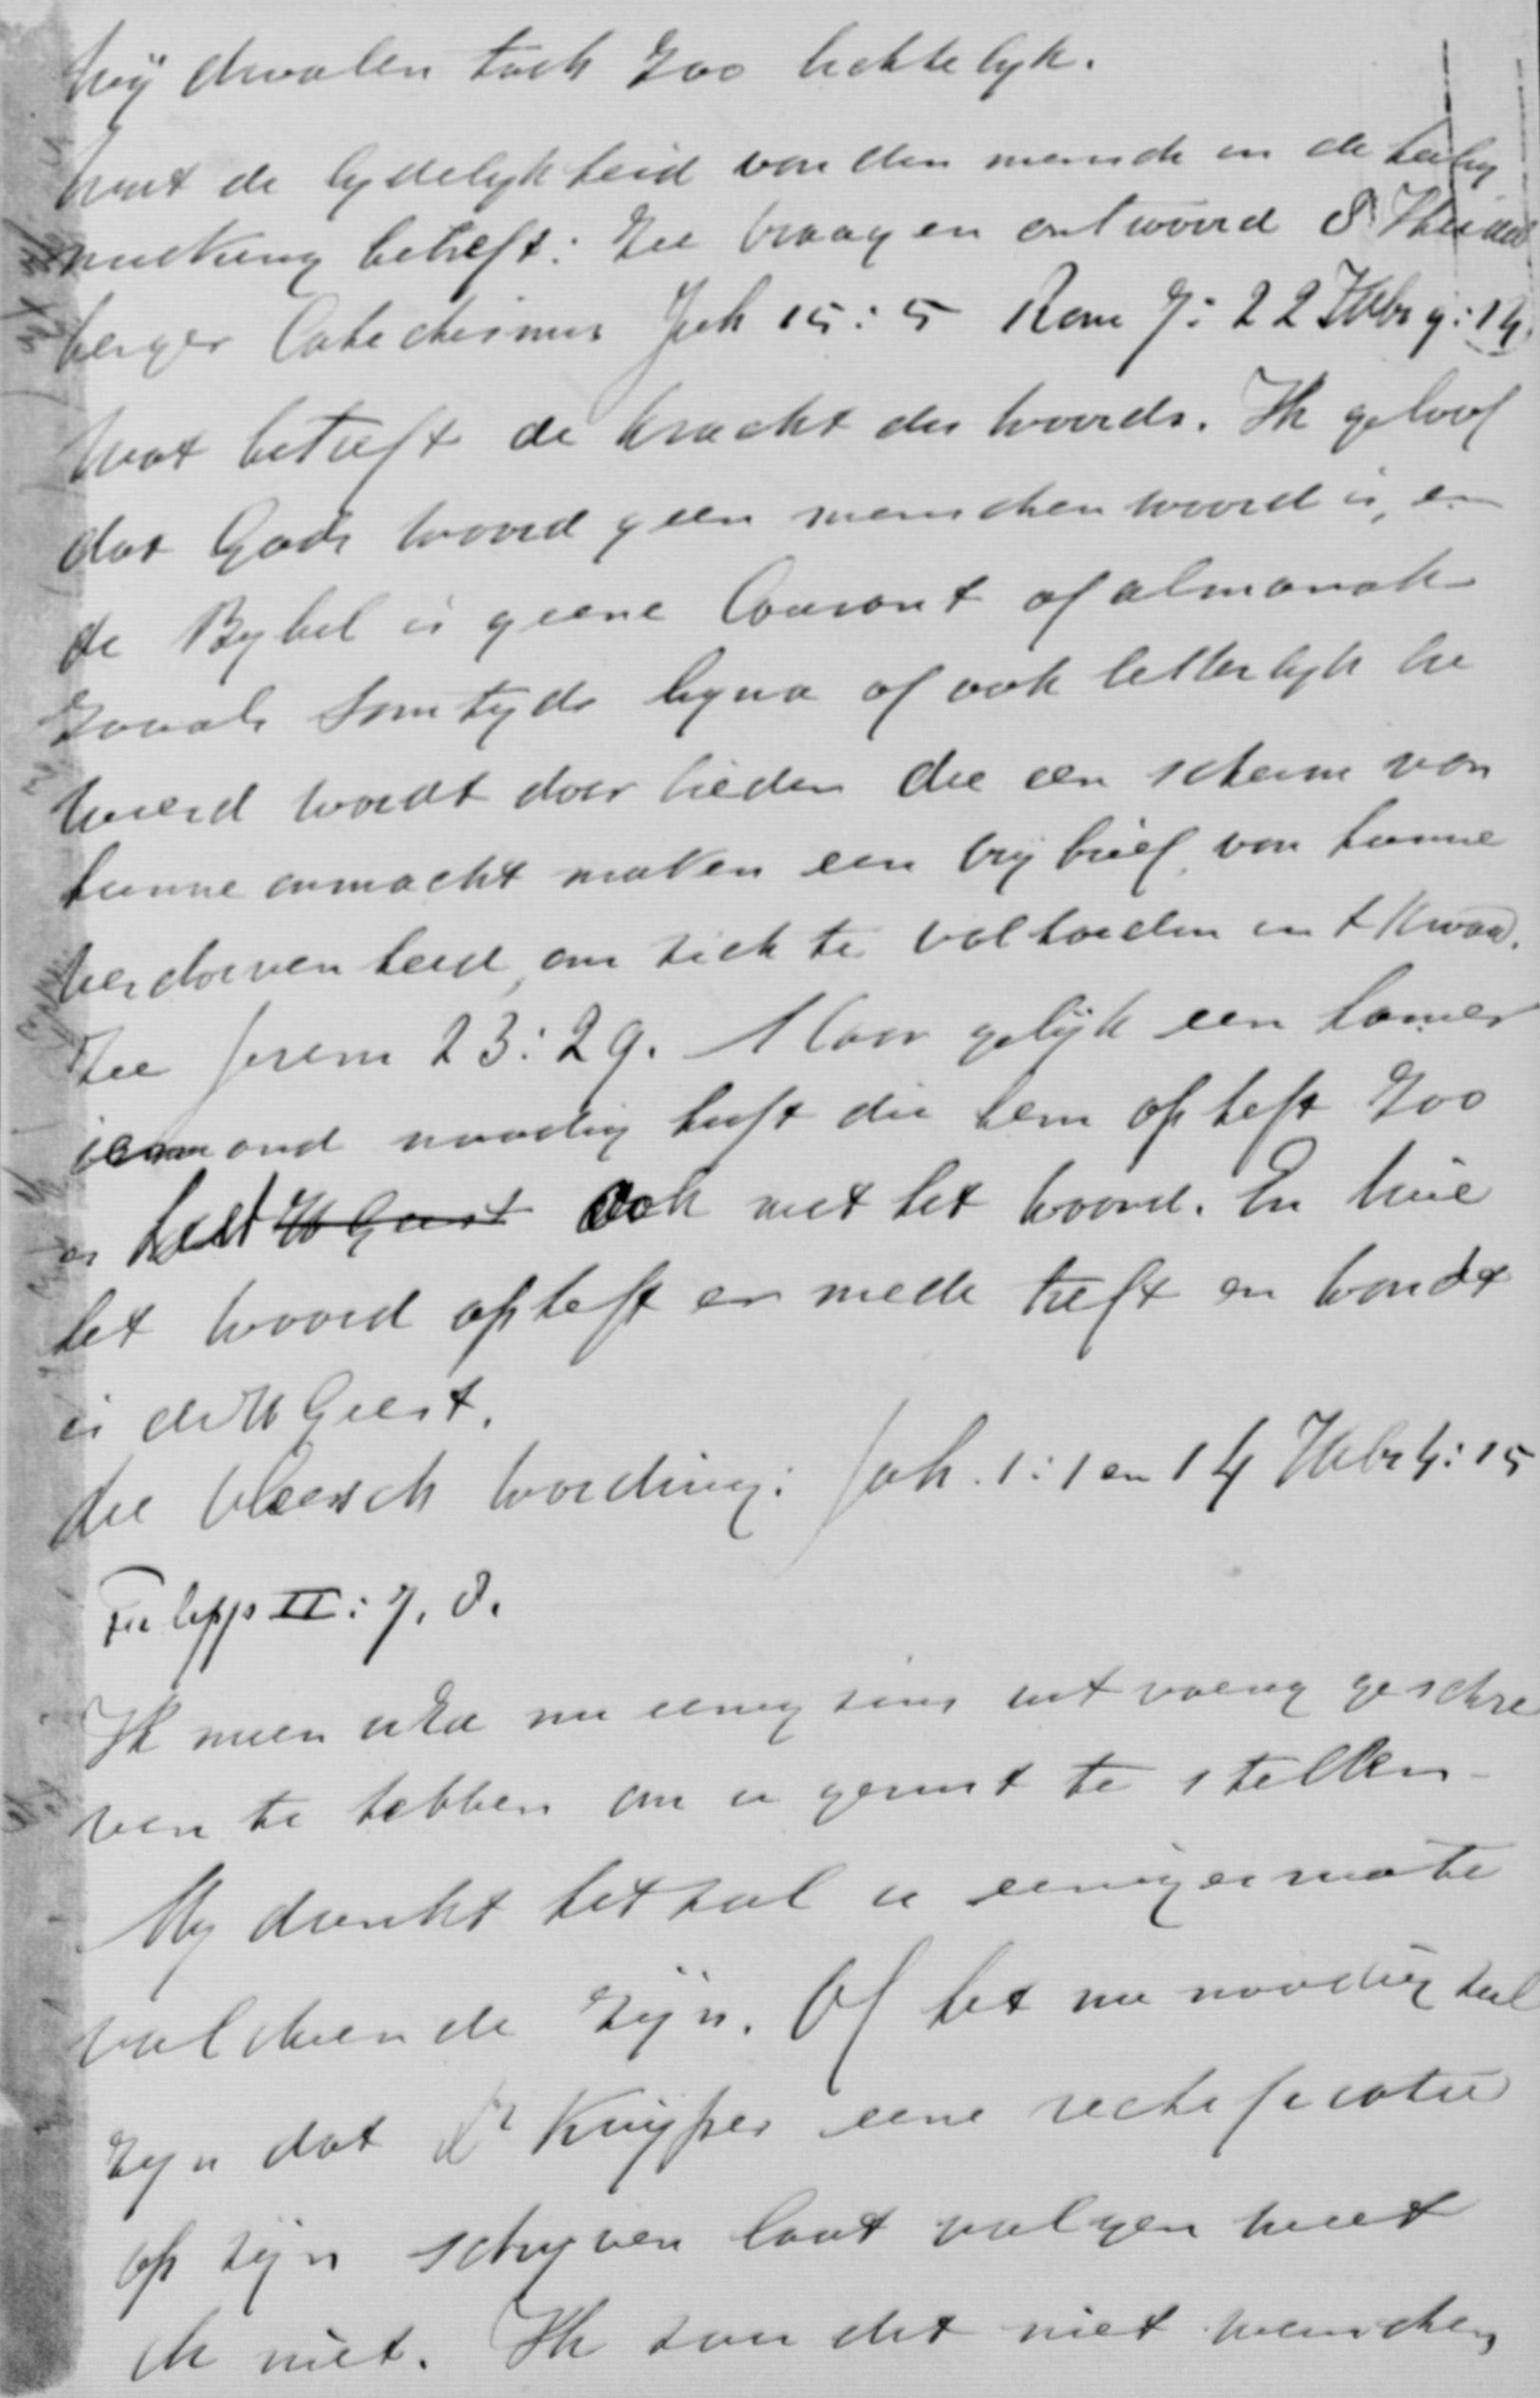 wij dwalen toch zoo lichtelyk.
Wat de lydelykheid van den mensch in de heilig
making betreft: Zie vraag en antwoord 8 Heidel
berger Catechismus Joh 15:5 Rom 7:22 Hebr 9:14.
Wat betreft de kracht des woords. Ik geloof
dat Gods woord geen menschen woord is, en
de Bybel is geene Courant of almanak
zooals somtyds byna of ook letterlyk be
weerd wordt door lieden die een scherm van
hunne onmacht maken een vrybrief van hunne
verdorvenheid, om zich te volharden in t Kwaad.
Zie Jerem 23:29. Maar gelijk een hamer
iemand noodig heeft die hem opheft zoo
is het ook met het woord. En wie
het woord opheft er mede treft en wondt
is de H Geest.
die vleesch wording: Joh. 1:1 en 14 Hebr 4:15
Filipp II: 7. 8.
Ik meen nu eenigsins uitvoerig geschre
ven te hebben om u gerust te stellen
My dunkt het zal u eenigermate
voldoende zijn. Of het nu noodig zal
zyn dat Dr Kuijper eene rectificatie
op zijn schryven laat volgen weet
ik niet. Ik zou dit niet wenschen